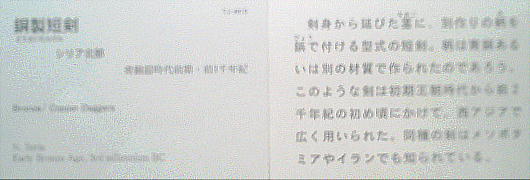 銅製短剣
シリア北部
青銅器時代前期・前3千年紀
Bronze/ Copper Daggers
N. Syria
Early Bronze Age, 3rd millennium BC
剣身から延びた茎に、別作りの柄を
鋲で付ける型式の短剣。柄は青銅ある
いは別の材質で作られたのであろう。
このような剣は初期王朝時代から前2
千年紀の初め頃にかけて、西アジアで
広く用いられた。同種の剣はメソポタ
ミアやイランでも知られている。